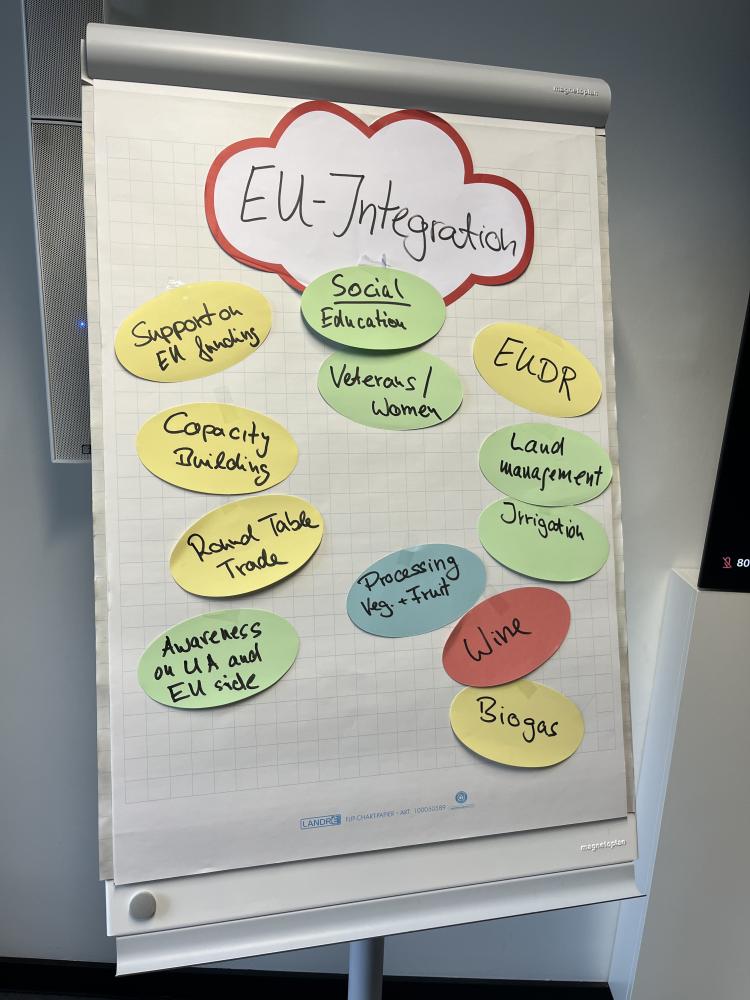 magnetoplan
EU-Integration
Social
Education
Veterans/
Women
Support on
EU funding
Capacity
Building
Round Table
Trade
Awareness
on UA and
EU side
EUDR
Land
management
Irrigation
Processing
Veg. + Fruit
Wine
Biogas
LANDRÉ FLIP-CHART-PAPIER • ART. 100050589
magnetoplan
80